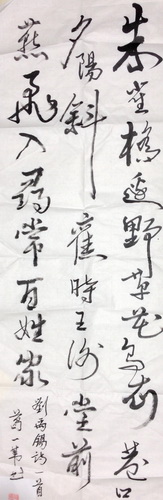 朱雀橋邊野草花烏衣巷口
夕陽斜舊時王謝堂前
燕飛入尋常百姓家
劉禹錫詩一首